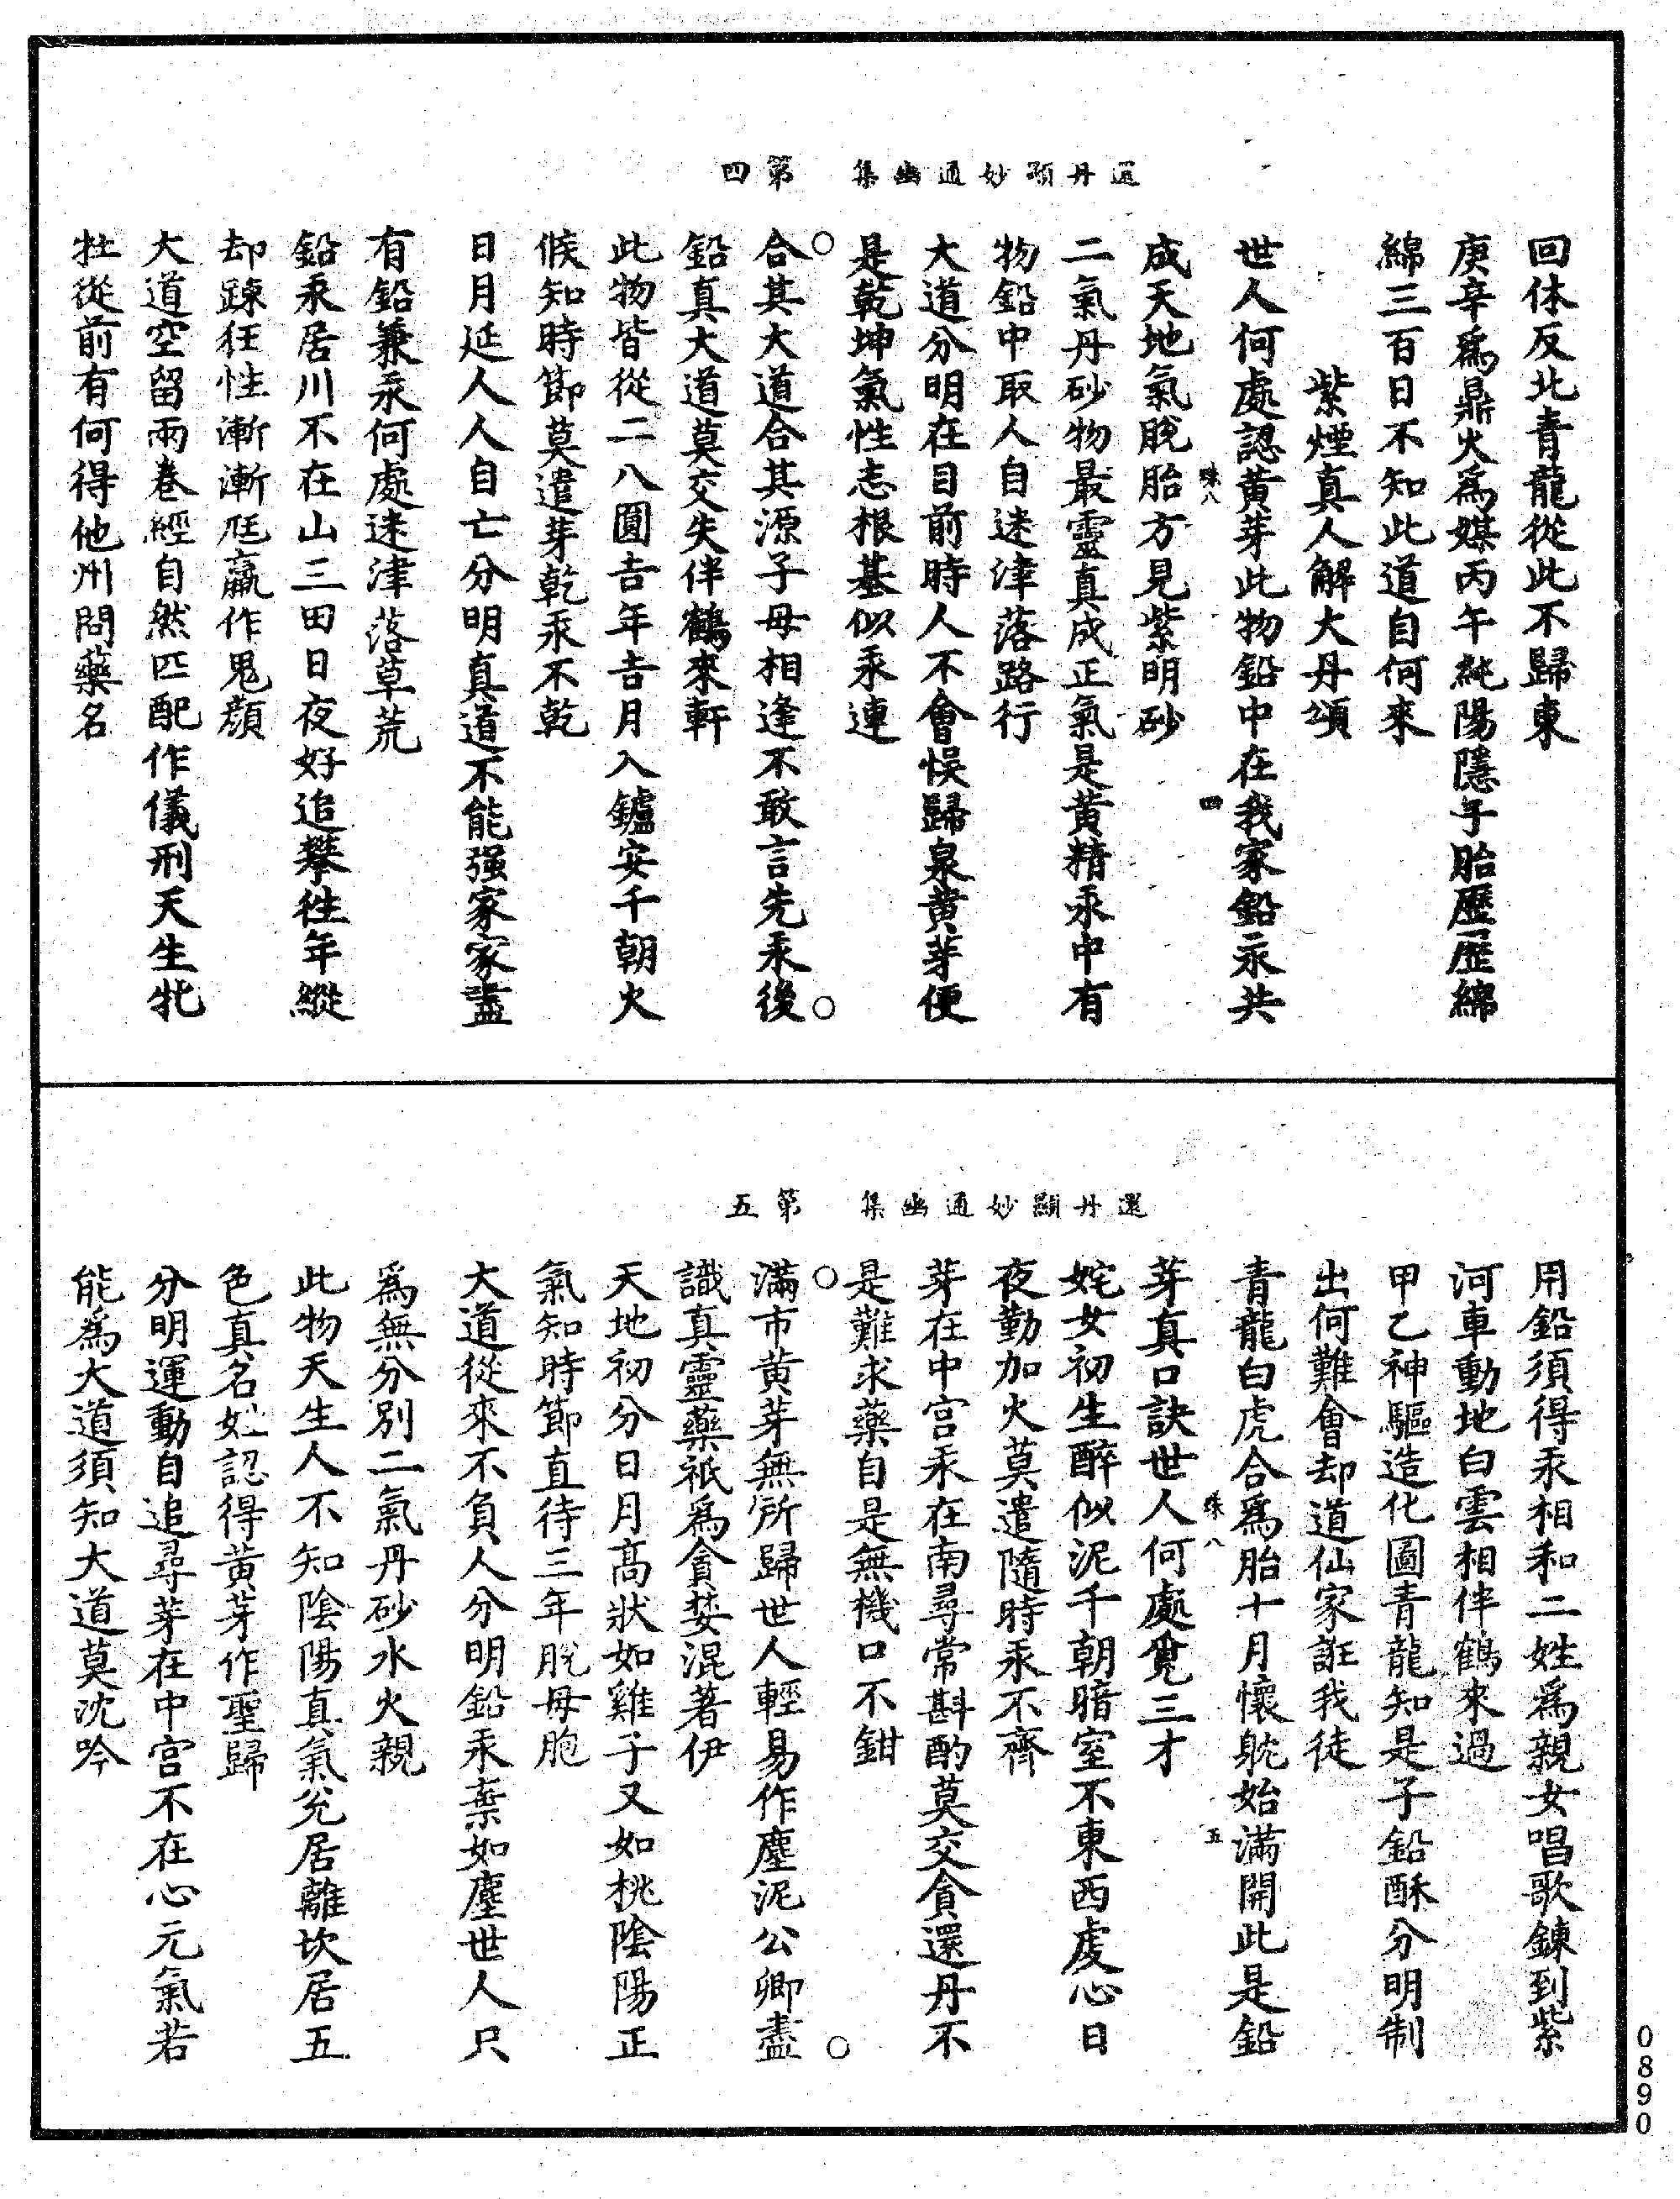 還丹顯妙通幽集　第四
回休反北青龍從此不歸東
庚辛為鼎火為媒丙午純陽隱子胎歷歷綿
綿三百日不知此道自何來
紫煙真人解大丹頌
世人何處認黃芽此物鉛中在我家鉛汞共
成天地氣脫胎方見紫明砂
珠八　四
二氣丹砂物最靈真成正氣是黃精汞中有
物鉛中取人自迷津落路行
大道分明在目前時人不會悞歸泉黃芽便
是乾坤氣性志根基似汞連
合其大道合其源子母相逢不敢言先汞後
鉛真大道莫交失伴鶴來軒
此物皆從二八圓吉年吉月入鑪安千朝火
候知時節莫遣芽乾汞不乾
日月延人人自亡分明真道不能强家家盡
有鉛兼汞何處迷津落草荒
鉛汞居川不在山三田日夜好追攀徃年縱
却踈狂性漸漸尫羸作鬼顏
大道空留兩卷經自然匹配作儀刑天生牝
牡從前有何得他州問藥名
還丹顯妙通幽集　第五
用鉛須得汞相和二姓為親女唱歌鍊到紫
河車動地白雲相伴鶴來過
甲乙神驅造化圖青龍知是子鉛酥分明制
出何難會却道仙家誑我徒
青龍白虎合為胎十月懷躭始滿開此是鉛
芽真口訣世人何處覓三才
珠八　五
姹女初生醉似泥千朝暗室不東西虔心日
夜勤加火莫遣隨時汞不齊
芽在中宮汞在南尋常斟酌莫交貪還丹不
是難求藥自是無機口不鉗
滿市黃芽無所歸世人輕易作塵泥公卿盡
識真靈藥祇為貪婪混著伊
天地初分日月高狀如雞子又如桃陰陽正
氣知時節直待三年脫母胞
大道從來不負人分明鉛汞棄如塵世人只
為無分別二氣丹砂水火親
此物天生人不知陰陽真氣兊居離坎居五
色真名妙認得黃芽作聖歸
分明運動自追尋芽在中宮不在心元氣若
能為大道須知大道莫沈吟
0890